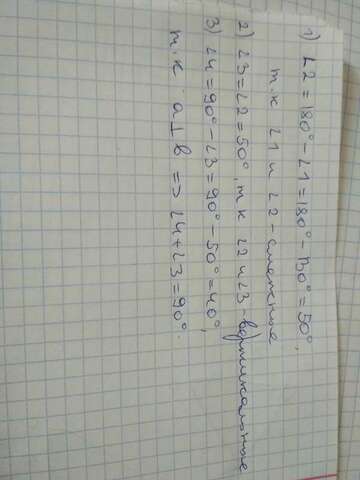 1) ∠2 = 180° - ∠1 = 180° - 130° = 50°,
т.к ∠1 и ∠2 - смежные
2) ∠3 = ∠2 = 50°, т к ∠2 и ∠3 - вертикальные
3) ∠4 = 90° - ∠3 = 90° - 50° = 40°,
т.к a ⊥ в => ∠4 + ∠3 = 90°.